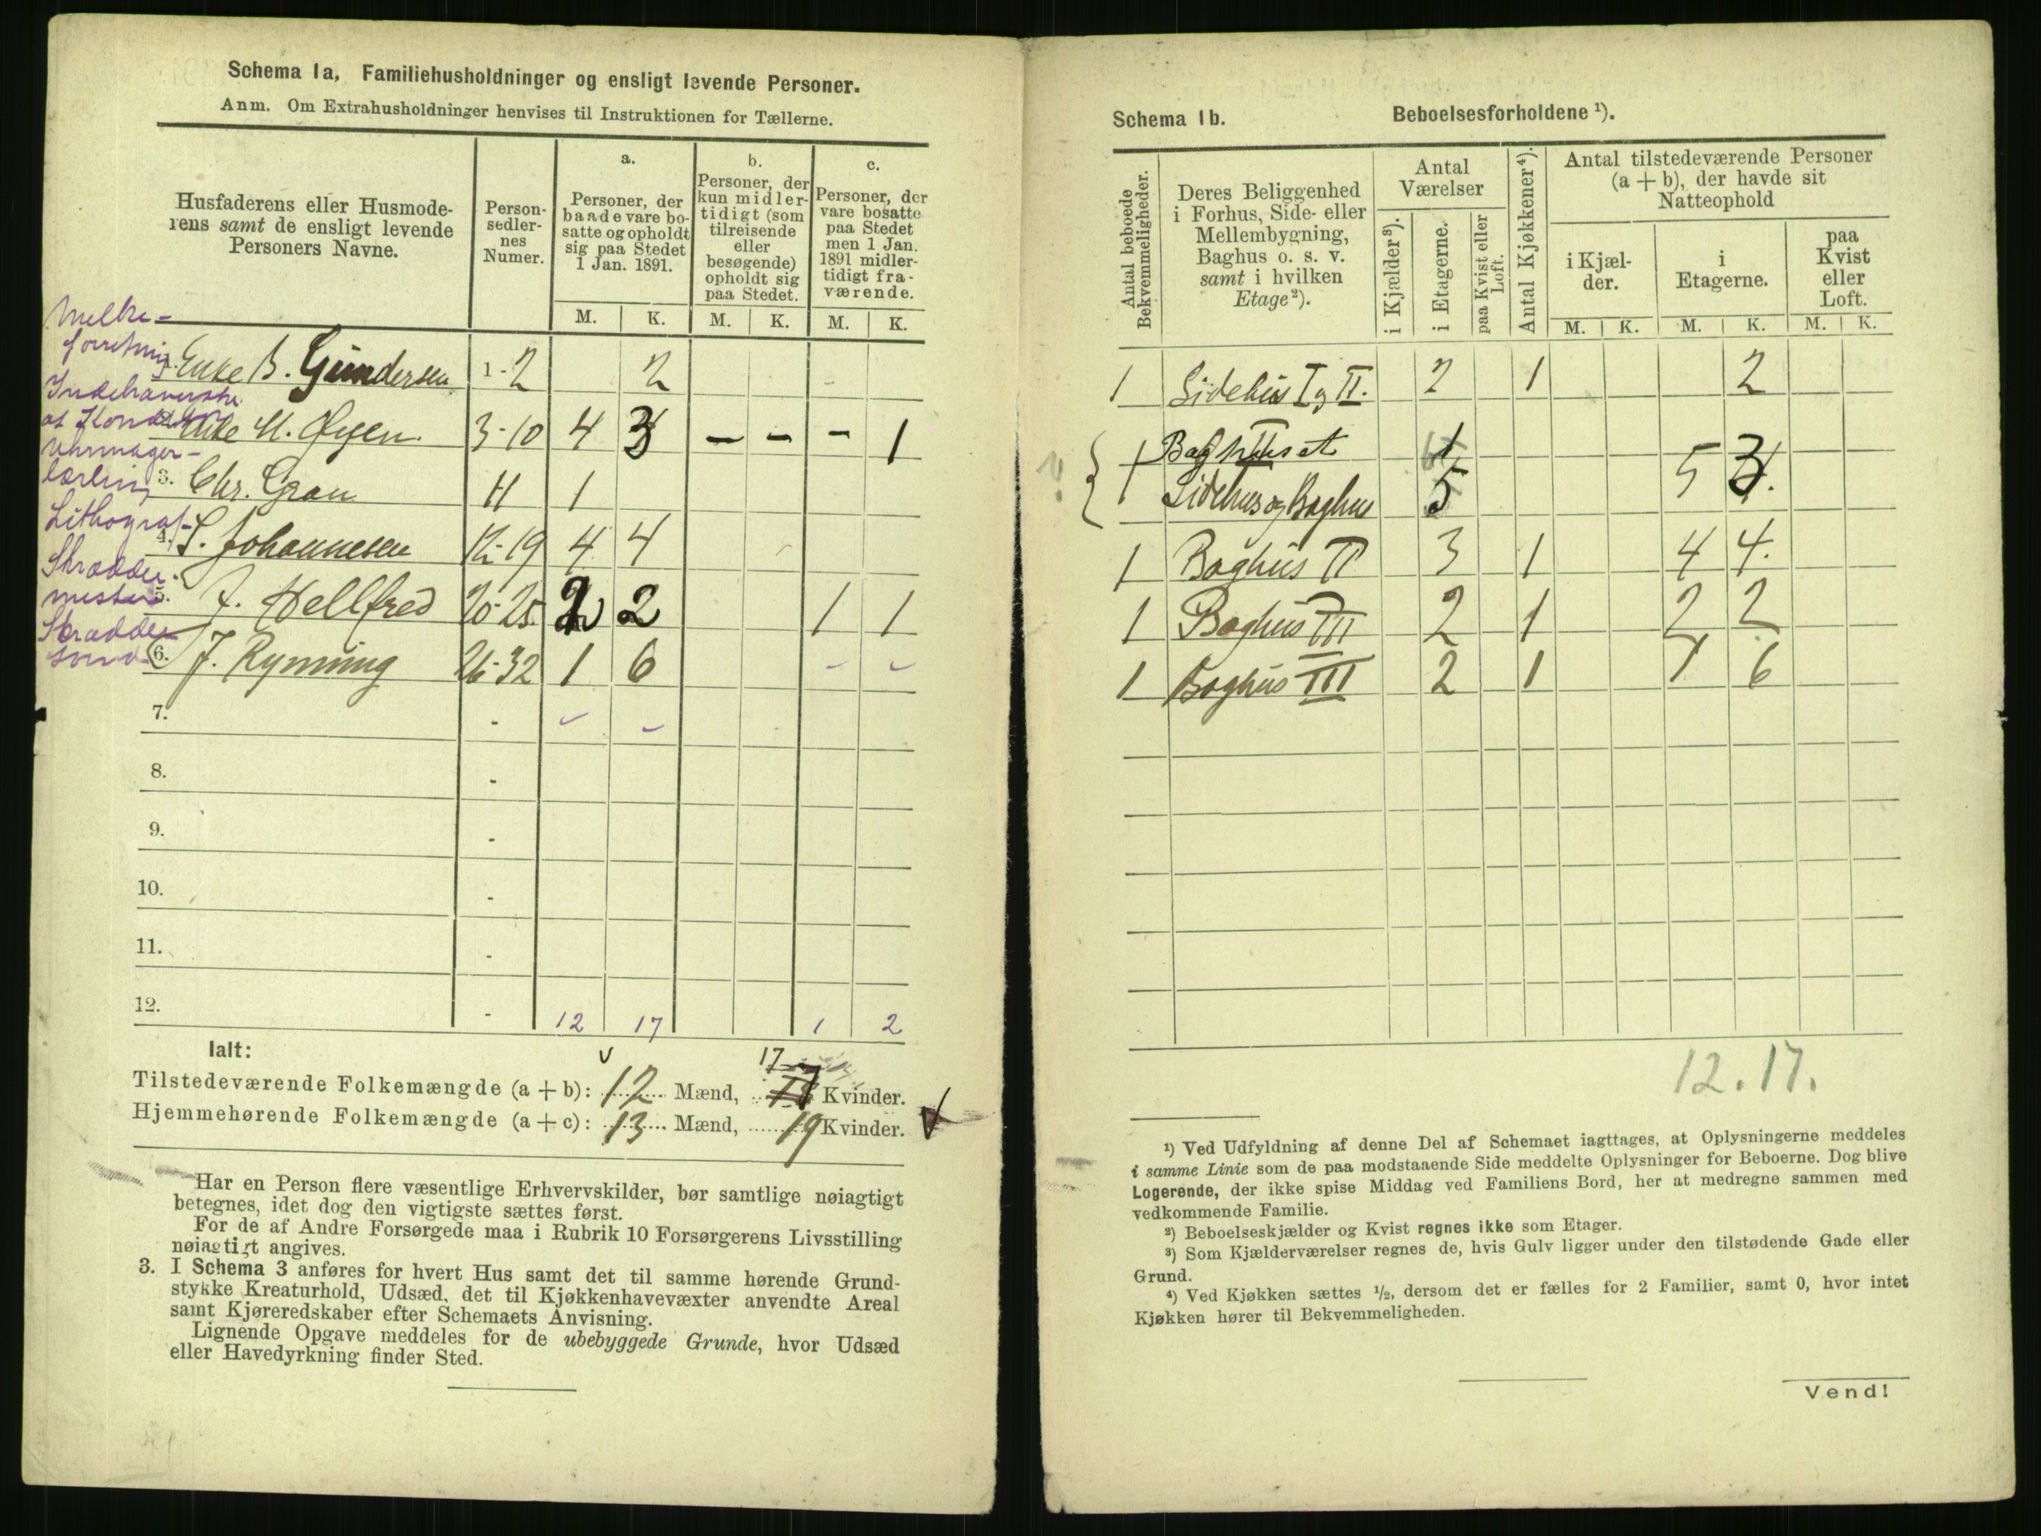 Schema Ia, Familiehusholdninger og ensligt levende Personer.
Anm. Om Extrahusholdninger henvises til Instruktionen for Tællerne.
Husfaderens eller Husmode-
rens samt de ensligt levende
Personers Navne.
Person-
sedler-
nes
Numer.
a.
Personer, der
baade vare bo-
satte og opholdt
sig paa Stedet
1 Jan. 1891.
b.
Personer, der
kun midler-
tidigt (som
tilreisende
eller
besøgende)
opholdt sig
paa Stedet.
c.
Personer, der
vare bosatte
paa Stedet
men 1 Jan.
1891 midler-
tidigt fra-
værende.
M. K. M. K. M. K.
Melke-
forretning
Enke B. Gundersen 1-2 2
Indehaverske
af
Enke M. Øyen. 3-10 4 3 - - - 1
Uhrmager-
lærling
3. Chr. Grau 11 1
Lithograf
4. S. Johannesen 12-19 4 4
Skrædder-
mester
5. J. Hellfred 20-25 2 2 1 1
Skrædder
svend
6. J. Rynning 26-32 1 6
7. -
8. -
9. -
10. -
11. -
12. - 12 17 1 2
Ialt:
17
Tilstedeværende Folkemængde (a + b): 12 Mænd, Kvinder.
Hjemmehørende Folkemængde (a + c): 13 Mænd, 19 Kvinder.
Har en Person flere væsentlige Erhvervskilder, bør samtlige nøiagtigt
betegnes, idet dog den vigtigste sættes først.
For de af Andre Forsørgede maa i Rubrik 10 Forsørgerens Livsstilling
nøiagtigt angives.
3. I Schema 3 anføres for hvert Hus samt det til samme hørende Grund-
stykke Kreaturhold, Udsæd, det til Kjøkkenhavevæxter anvendte Areal
samt Kjøreredskaber efter Schemaets Anvisning.
Lignende Opgave meddeles for de ubebyggede Grunde, hvor Udsæd
eller Havedyrkning finder Sted.
Schema Ib. Beboelsesforholdene ¹).
Antal beboede
Bekvemmeligheder.
Deres Beliggenhed
i Forhus, Side- eller
Mellembygning,
Baghus o. s. v.
samt i hvilken
Etage²).
Antal
Værelser
i Kjælder³).
i Etagerne.
paa Kvist eller
Loft.
Antal Kjøkkener⁴).
Antal tilstedeværende Personer
(a + b), der havde sit
Natteophold
i Kjæl-
der.
i
Etagerne.
paa
Kvist
eller
Loft.
M. K. M. K. M. K.
1 Sidehus I og II. 2 1 2
Baghuset 1
1 Sidehus og Baghus 5 5 3
1 Baghus II 3 1 4 4.
1 Baghus III 2 1 2 2
1 Baghus III 2 1 1 6
12. 17.
¹) Ved Udfyldning af denne Del af Schemaet iagttages, at Oplysningerne meddeles
i samme Linie som de paa modstaaende Side meddelte Oplysninger for Beboerne. Dog blive
Logerende, der ikke spise Middag ved Familiens Bord, her at medregne sammen med
vedkommende Familie.
²) Beboelseskjælder og Kvist regnes ikke som Etager.
³) Som Kjælderværelser regnes de, hvis Gulv ligger under den tilstødende Gade eller
Grund.
⁴) Ved Kjøkken sættes ½, dersom det er fælles for 2 Familier, samt 0, hvor intet
Kjøkken hører til Bekvemmeligheden.
Vend!